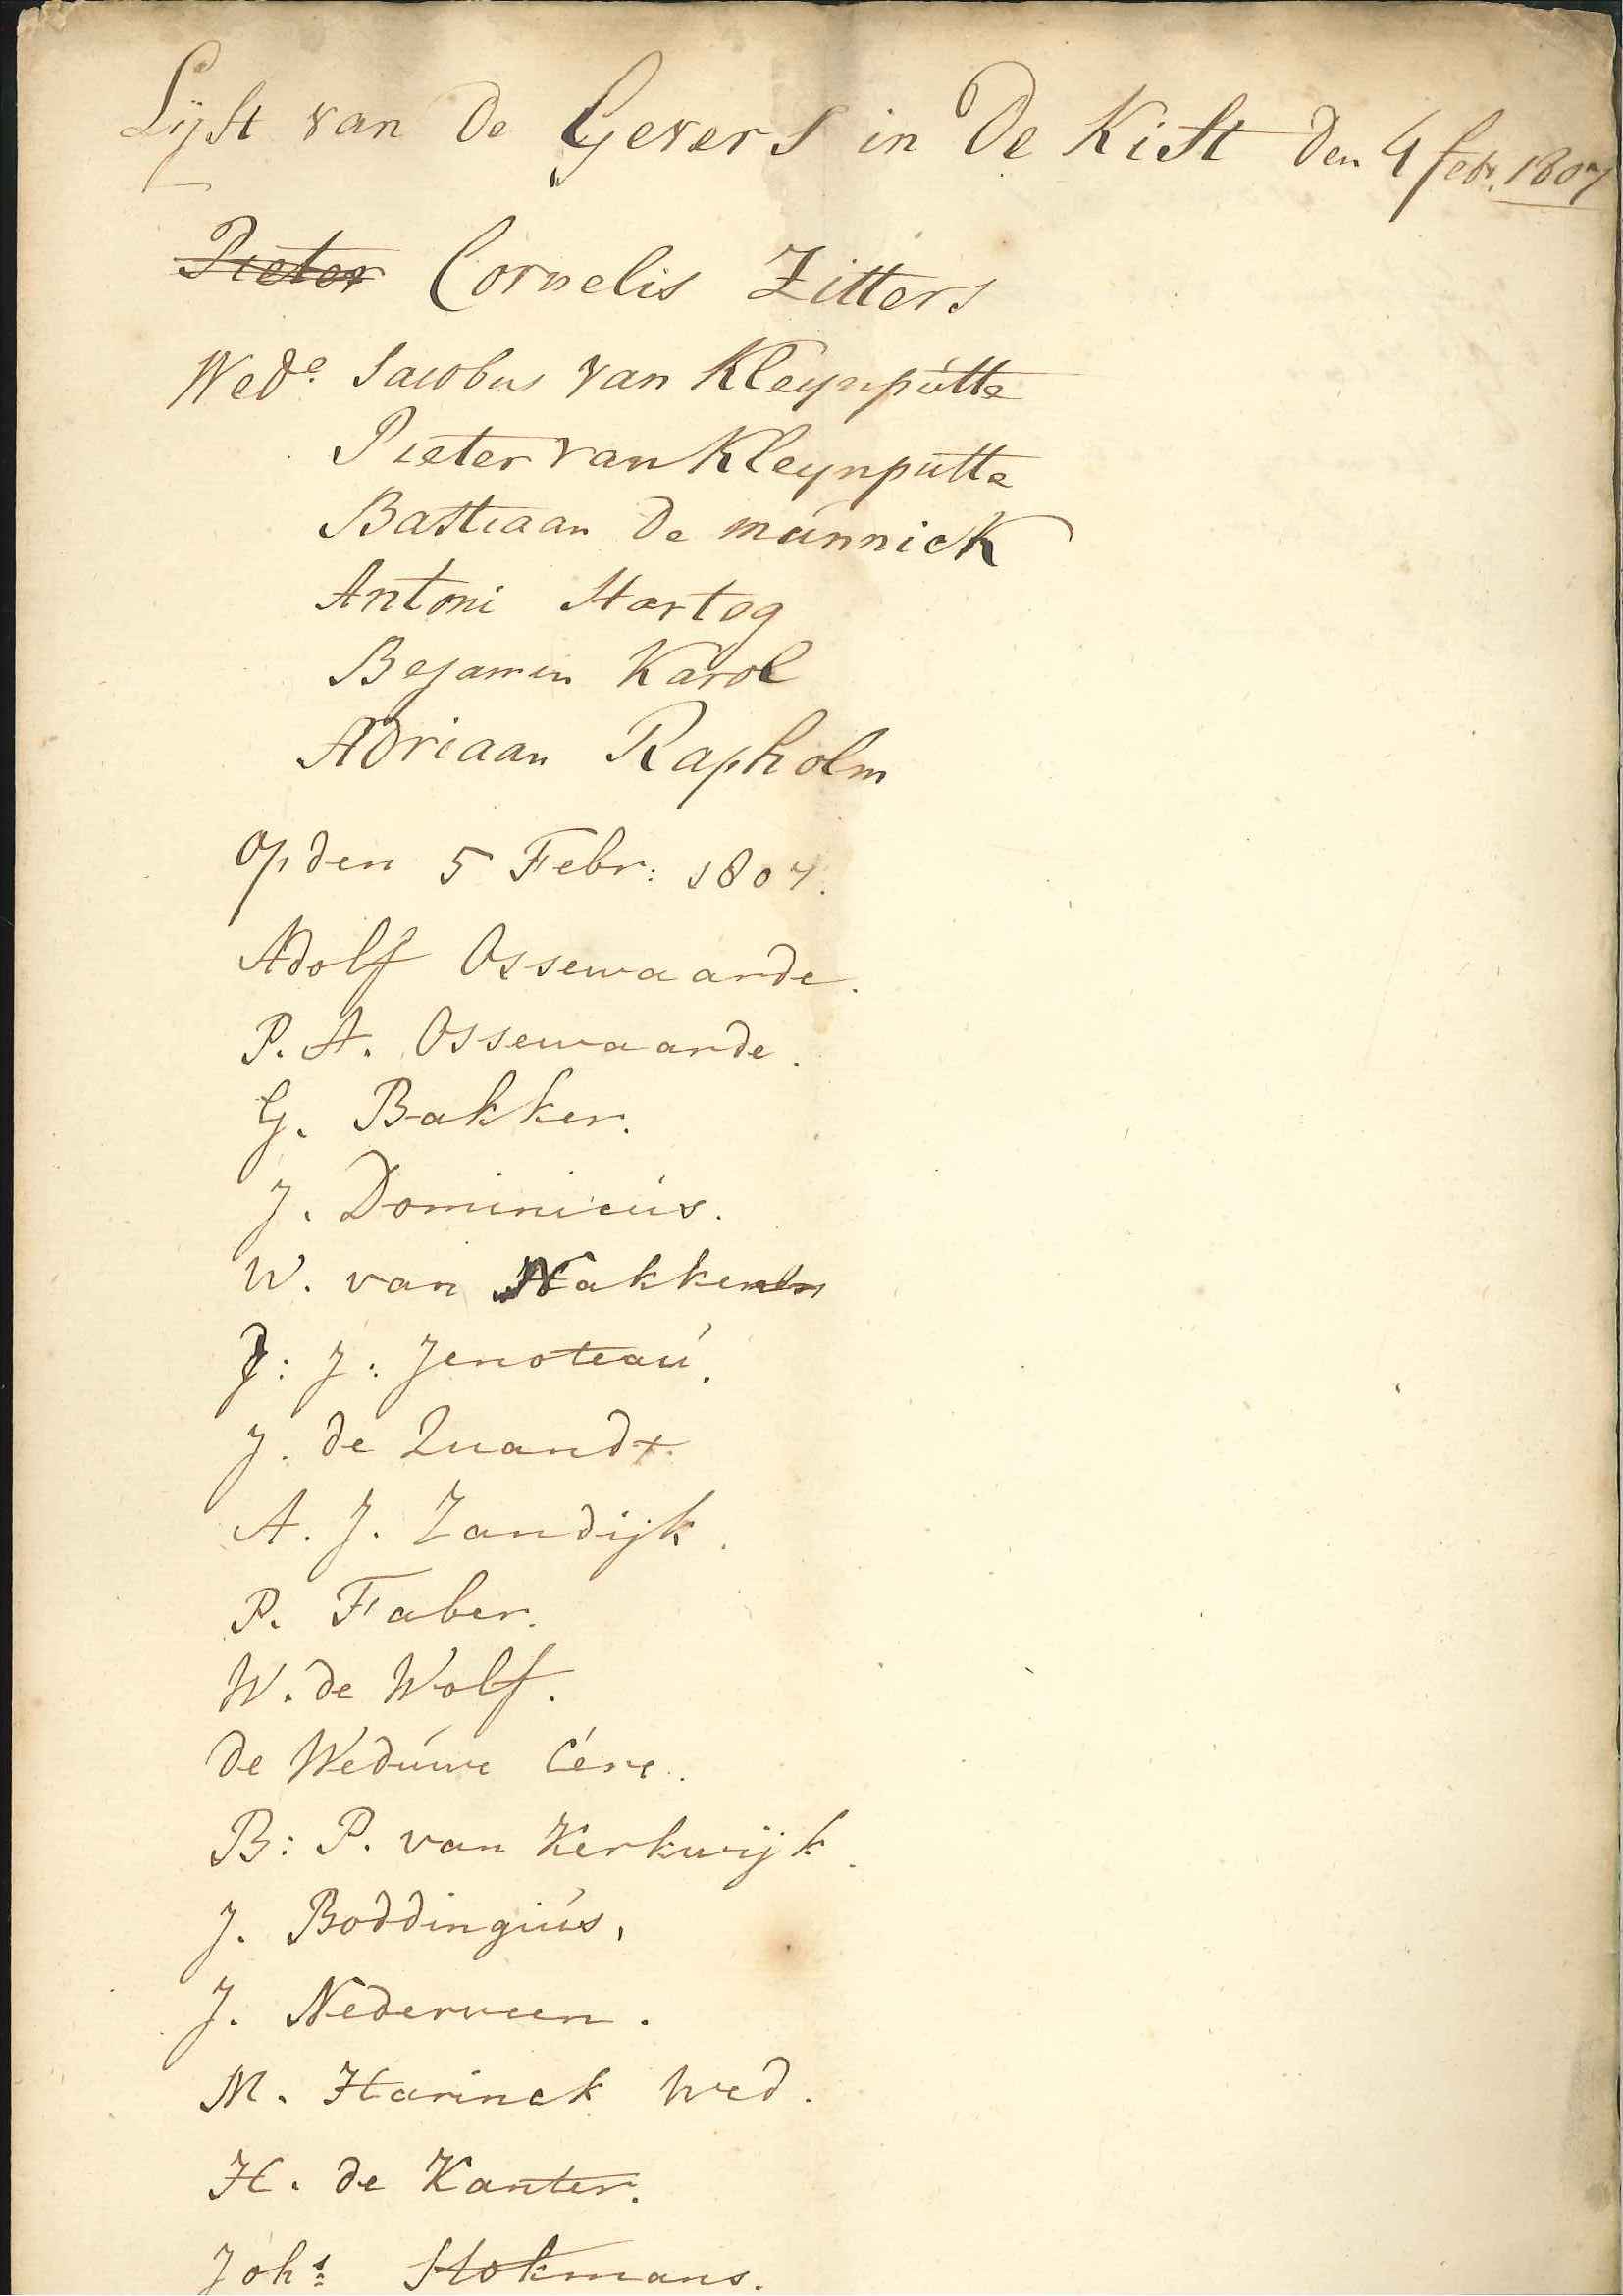 Lijst van de Gevers in de Kist den 4 febr. 1807
Pieter Cornelis Zitters
Wede. Jacobus van Kleynputte
Pieter van Kleynputte
Bastiaan de munnick
Antoni Hartog
Bejamin Karol
Adriaan Rapholm
Op den 5 Febr: 1807.
Adolf Ossewaarde.
P. A. Ossewaarde.
G. Bakker.
J. Dominicus.
W. van
J: J: Jenoteau.
J. de
A. J. Zandijk.
P. Faber.
W. de Wolf.
de Weduwe Cére.
B: P. van Kerkwijk.
J. Boddingius.
J. Nederveen.
M. Harinck Wed.
H. de Kanter.
Johs: Stokmans.